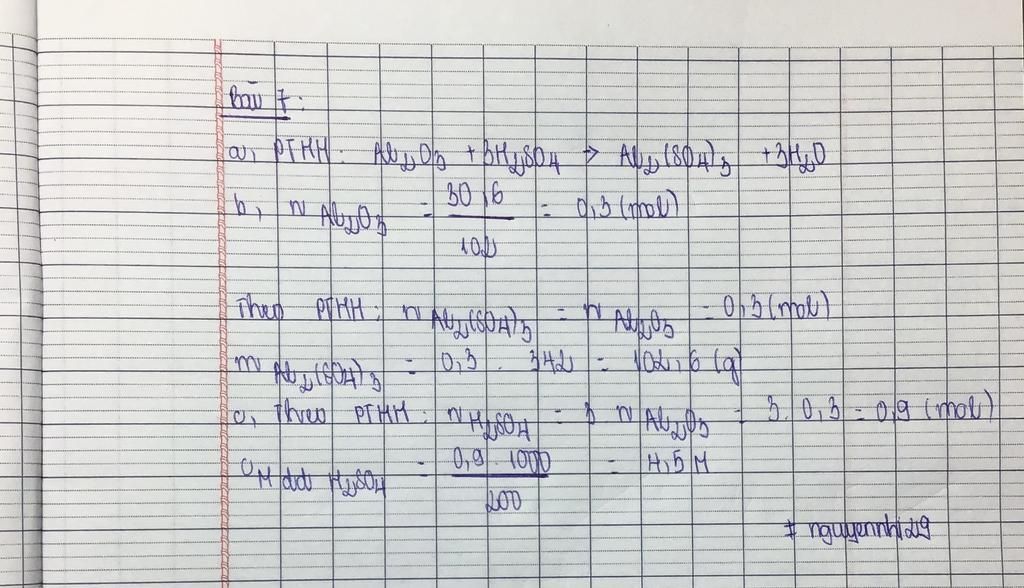 Bài 7:
a, PTHH: Al₂O₃ + 3H₂SO₄ → Al₂(SO₄)₃ + 3H₂O
b, n Al₂O₃ = 30,6 / 102 = 0,3 (mol)
Theo PTHH: n Al₂(SO₄)₃ = n Al₂O₃ = 0,3 (mol)
m Al₂(SO₄)₃ = 0,3 . 342 = 102,6 (g)
c, Theo PTHH: n H₂SO₄ = 3 n Al₂O₃ = 3. 0,3 = 0,9 (mol)
C M dd H₂SO₄ = 0,9 . 1000 / 200 = 4,5 M
# nguyennhi29